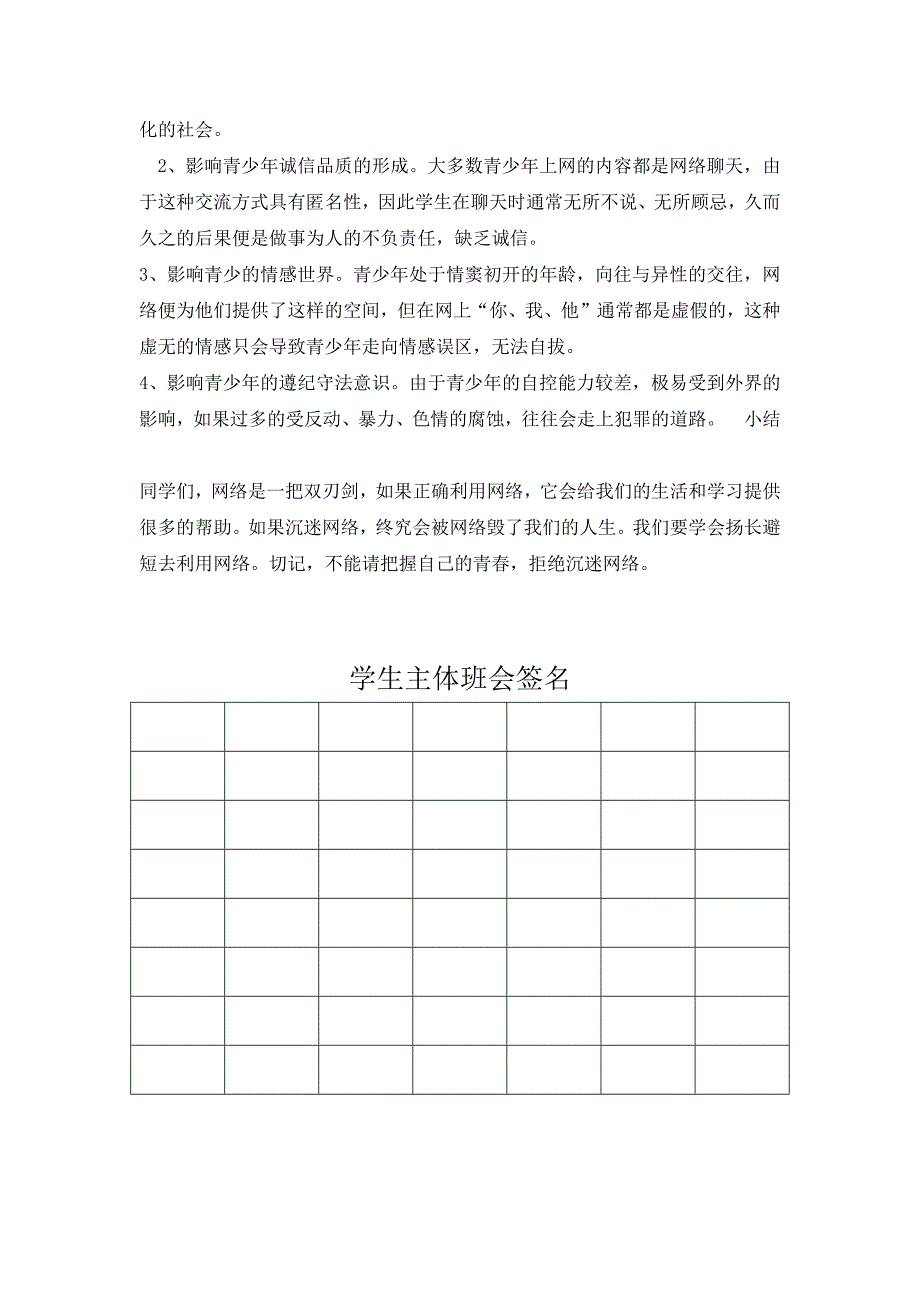 化的社会。
2、影响青少年诚信品质的形成。大多数青少年上网的内容都是网络聊天，由
于这种交流方式具有匿名性，因此学生在聊天时通常无所不说、无所顾忌，久而
久之的后果便是做事为人的不负责任，缺乏诚信。
3、影响青少的情感世界。青少年处于情窦初开的年龄，向往与异性的交往，网
络便为他们提供了这样的空间，但在网上“你、我、他”通常都是虚假的，这种
虚无的情感只会导致青少年走向情感误区，无法自拔。
4、影响青少年的遵纪守法意识。由于青少年的自控能力较差，极易受到外界的
影响，如果过多的受反动、暴力、色情的腐蚀，往往会走上犯罪的道路。 小结
同学们，网络是一把双刃剑，如果正确利用网络，它会给我们的生活和学习提供
很多的帮助。如果沉迷网络，终究会被网络毁了我们的人生。我们要学会扬长避
短去利用网络。切记，不能请把握自己的青春，拒绝沉迷网络。
学生主体班会签名